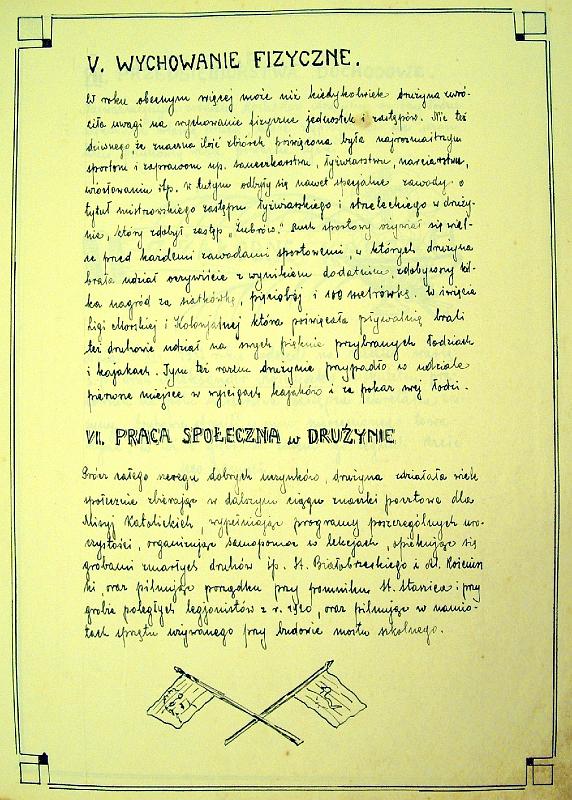 V. WYCHOWANIE FIZYCZNE.
W roku obecnym więcej może niż kiedykolwiek drużyna zwró-
ciła uwagi na wychowanie fizyczne jednostek i zastępów. Nic też
dziwnego, że znaczna ilość zbiórek poświęcona była najrozmaitszym
sportom i zaprawom np. saneczkarstwu, łyżwiarstwu, narciarstwu,
wiosłowaniu itp. W lutym odbyły się nawet specjalne zawody o
tytuł mistrzowskiego zastępu łyżwiarskiego i strzeleckiego w druży-
nie, który zdobył zastęp „Żubrów." Ruch sportowy ożywiał się wiel-
ce przed każdemi zawodami sportowemi, w których drużyna
brała udział oczywiście z wynikiem dodatnim, zdobywszy kil-
ka nagród za siatkówkę, pięciobój i 100 metrówkę. W święcie
Ligi Morskiej i Kolonjalnej która poświęcała pływalnię brali
też druhowie udział na swych pięknie przybranych łodziach
i kajakach. Tym też razem drużynie przypadło w udziale
pierwsze miejsce w wyścigach kajaków i za pokaz swej łodzi.
VI. PRACA SPOŁECZNA w DRUŻYNIE
Prócz całego szeregu dobrych uczynków, drużyna zdziałała wiele
społecznie zbierając w dalszym ciągu znaczki pocztowe dla
Misyj Katolickich, wypełniając programy poszczególnych uro-
czystości, organizując samopomoc w lekcjach, opiekując się
grobami zmarłych druhów śp. St. Białobrzeskiego i
ki, oraz pilnując porządku przy pomniku St. Staszica i przy
grobie poległych legjonistów z r. 1920, oraz pilnując w namio-
tach sprzętu używanego przy budowie mostu szkolnego.